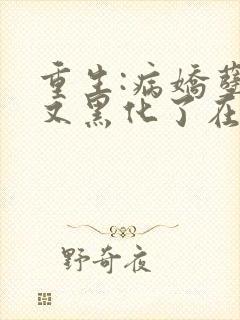 重生:病娇
又黑化了在
野奇夜